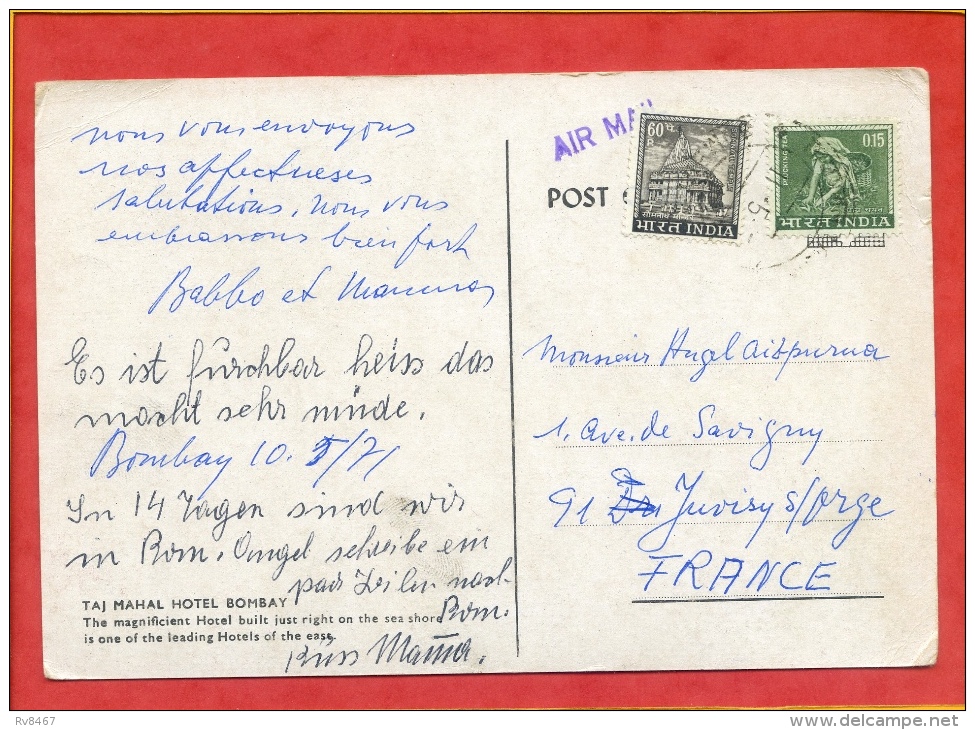 nous vous envoyons
nos affectueses
salutations, nous vous
embrassons bien fort
Babbo et Mamma
Es ist furchbar heiss das
macht sehr müde.
Bombay 10. 5/71
In 14 Tagen sind wir
in Rom. Angel schreibe ein
paar Zeilen nach
Rom.
Küss Mama.
TAJ MAHAL HOTEL BOMBAY
The magnificient Hotel built just right on the sea shore
is one of the leading Hotels of the east.
AIR MAIL
POST
60 प.
सोमनाथ मन्दिर
भारत INDIA
0.15
PLUCKING TEA
भारत INDIA
Monsieur Angel Aizpurua
1. Ave. de Savigny
91 Juvisy s/orge
FRANCE
Rv8467
delcampe.net